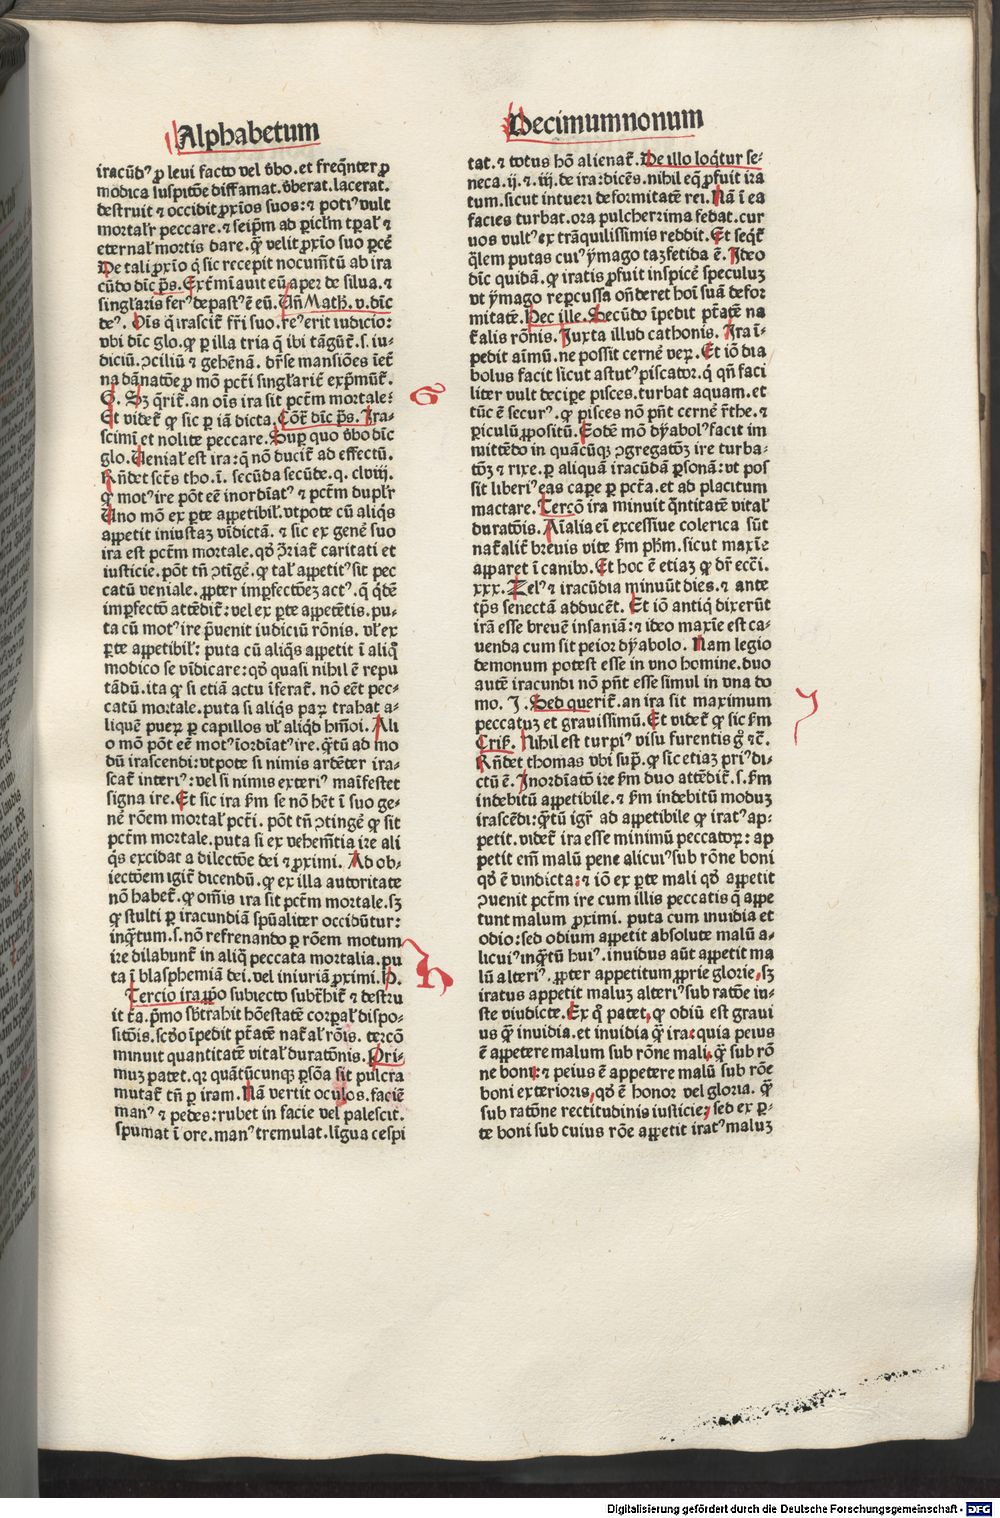 Alphabetum
iracūdꝰ ꝓ leui facto vel v̄bo.et freq̄nter ꝓ
modica suspitōe diffamat.v̄berat.lacerat.
destruit ⁊ occidit ꝓxīos suos:⁊ potiꝰ vult
mortal'r peccare.⁊ seip̄m ad ꝑicl'm tꝑal' ⁊
eternal' mortis dare.q̄ꝫ velit ꝓxīo suo ꝑcē
De tali ꝓxīo q̇ sic recepit nocumētū ab ira
cūdo dic̄ p̄s.Extēmīauit eū aper de silua.⁊
singl'aris ferꝰ depastꝰ ē eū.Vn̄ Math.v.dic̄
deꝰ. Oīs q̇ irascit̄ fr̄i suo.reꝰ erit iudicio:
vbi dic̄ glo.ꝙ ꝑ illa tria q̄ ibi tāgūt̄.s.iu-
diciū.ↄciliū ⁊ gehēnā. dr̄se mansiōes īet̄
na dānatōe ꝓ mō pct̄i singl'arit̄ exp̄mūt̄.
G. Sꝫ q̄rit̄.an oīs ira sit pct̄m mortale:
Et videt̄ ꝙ sic ꝑ iā dicta.Cōt̄ dic̄ p̄s.Ira-
scimī et nolite peccare.Suꝑ quo v̄bo dic̄
glo.Uenial' est ira:q̄ nō ducit̄ ad effectū.
Rn̄det sct̄s tho.ī.secūda secūde.q.clviij.
ꝙ motꝰ ire pōt eē inordīatꝰ ⁊ pct̄m dupl'r
Uno mō ex ꝑte appetibil'.vtpote cū aliq̄s
appetit iniustaꝫ vīdictā.⁊ sic ex genē suo
ira est pct̄m mortale.qꝛ ↄ̄riat̄ caritati et
iusticie.pōt tn̄ ↄtīgē.ꝙ tal' appetitꝰ sit pec
catū veniale.ꝓpter imꝑfectōeꝫ actꝰ.q̄ q̇dē
imꝑfectō attēdit̄:vel ex ꝑte appetētis.pu-
ta cū motꝰ ire p̄uenit iudiciū rōnis.vl' ex
ꝑte appetibil': puta cū aliq̄s appetit ī aliq̊
modico se vīdicare:qꝛ quasi nihil ē repu
tādū.ita ꝙ si etiā actu īferat̄.nō eēt pec-
catū mortale.puta si aliq̄s paꝝ trahat a-
liquē pueꝝ ꝑ capillos vl' aliq̇d hm̄oi.Ali
o mō pōt eē motꝰ īordīatꝰ ire.q̄tū ad mo
dū irascendi:vtpote si nimis ardēter ira-
scat̄ interiꝰ:vel si nimis exteriꝰ maīfestet
signa ire.Et sic ira ẜm se nō hēt ī suo ge-
nē rōem mortal' pct̄i. pōt tn̄ ↄtingē ꝙ sit
pct̄m mortale.puta si ex vehemētia ire ali
q̄s excidat a dilectōe dei ⁊ ꝓximi. Ad ob-
iectōem igit̄ dicendū.ꝙ ex illa autoritate
nō habet̄.ꝙ om̄is ira sit pct̄m mortale.sꝫ
ꝙ stulti ꝑ iracundiā spūaliter occidūtur:
inq̄tum.s.nō refrenando ꝑ rōem motum
ire dilabunt̄ in aliq̄ peccata mortalia.pu
ta ī blasphemiā dei.vel iniuriā ꝓximi.H.
Tercio ira ꝓprio subiecto subr̄hit̄ ⁊ destru
it tr̄a.pꝛmo sb̄trahit hōestatē corꝑal' dispo-
sitōis.scd̄o īpedit ptātē nat̄al' rōis. tercō
minuit quantitatē vital' duratōnis.Pri-
muꝫ patet.qꝛ quātūcunqꝫ ꝑsōa sit pulcra
mutat̄ tn̄ ꝑ iram.Nā vertit oculos.faciē
manꝰ ⁊ pedes:rubet in facie vel palescit.
spumat ī ore.manꝰ tremulat.līgua cespi
G
h
Decimumnonum
tat.⁊ totus hō alienat̄.De illo loq̄tur se-
neca.ij.⁊.iij.de ira:dicēs.nihil eq̄ ꝓfuit ira
tum.sicut intueri deformitatē rei.Nā ī ea
facies turbat.ora pulcherrima fedat.cur
uos vultꝰ ex trāquilissimis reddit.Et seqt̄
q̄lem putas cuiꝰ ymago taꝫ fetida ē.Ideo
dic̄ quidā.ꝙ iratis ꝓfuit inspicē speculuꝫ
vt ymago reꝑcussa on̄deret hoī suā defor
mitatē.Hec ille.Secūdo īpedit ptātē na
t̄alis rōnis.Iuxta illud cathonis. Ira ī-
pedit aīmū.ne possit cernē veꝝ.Et iō dia
bolus facit sicut astutꝰ piscator.q̇ qn̄ faci
liter vult decipe pisces.turbat aquam.et
tūc ē securꝰ.ꝙ pisces nō pn̄t cernē r̄the.⁊
ꝑiculū ꝓpositū.Eodē mō dyabolꝰ facit im
mittēdo in quācūqꝫ ↄgregatōꝫ ire turba-
tōꝫ ⁊ rixe.ꝑ aliquā iracūdā ꝑsonā:vt pos
sit liberiꝰ eas cape ꝑ pct̄a.et ad placitum
mactare.Tercō ira minuit q̄ntitatē vital'
duratōis.Aīalia eī excessiue colerica sūt
nat̄alit̄ breuis vite ẜm ph̄m.sicut maxīe
apparet ī canibꝰ.Et hoc ē etiaꝫ ꝙ dr̄ ecc̄i.
xxx.Zelꝰ ⁊ iracūdia minuūt dies.⁊ ante
tp̄s senectā abducēt.Et iō antiq̇ dixerūt
irā esse breuē insaniā:⁊ ideo maxīe est ca-
uenda cum sit peior dyabolo. Nam legio
demonum potest esse in vno homine.duo
autē iracundi nō pn̄t esse simul in vna do
mo. J. Sed querit̄.an ira sit maximum
peccatuꝫ et grauissimū.Et videt̄ ꝙ sic ẜm
Criẜ. Nihil est turpiꝰ visu furentis gͦ ⁊c̄.
Rn̄det thomas vbi supꝛ.ꝙ sic etiaꝫ priꝰ di-
ctū ē.Inordīatō ire ẜm duo attēdit̄.s.ẜm
indebitū appetibile.⁊ ẜm indebitū moduꝫ
irascēdi:q̄tū igr̄ ad appetibile ꝙ iratꝰ ap-
petit.videt̄ ira esse minimū peccatoꝝ: ap
petit em̄ malū pene alicuiꝰ sub rōne boni
qꝛ ē vindicta:⁊ iō ex ꝑte mali qꝛ appetit
ↄuenit pct̄m ire cum illis peccatis q̄ appe
tunt malum ꝓximi. puta cum inuidia et
odio:sed odium appetit absolute malū a-
licuiꝰ inq̄tū huiꝰ.inuidus aūt appetit ma
lū alteriꝰ.ꝓpter appetitum ꝓprie glorie,sꝫ
iratus appetit maluꝫ alteriꝰ sub ratōe iu-
ste vīdicte.Ex q̊ patet,ꝙ odiū est graui
us q̄ꝫ inuidia.et inuidia q̄ꝫ ira:quia peius
ē appetere malum sub rōne mali,q̄ꝫ sub rō
ne boni:⁊ peius ē appetere malū sub rōe
boni exterioris,qꝛ ē honor vel gloria. q̄ꝫ
sub ratōne rectitudinis iusticie,sed ex ꝑ-
te boni sub cuius rōe appetit iratꝰ maluꝫ
J
Digitalisierung gefördert durch die Deutsche Forschungsgemeinschaft - DFG